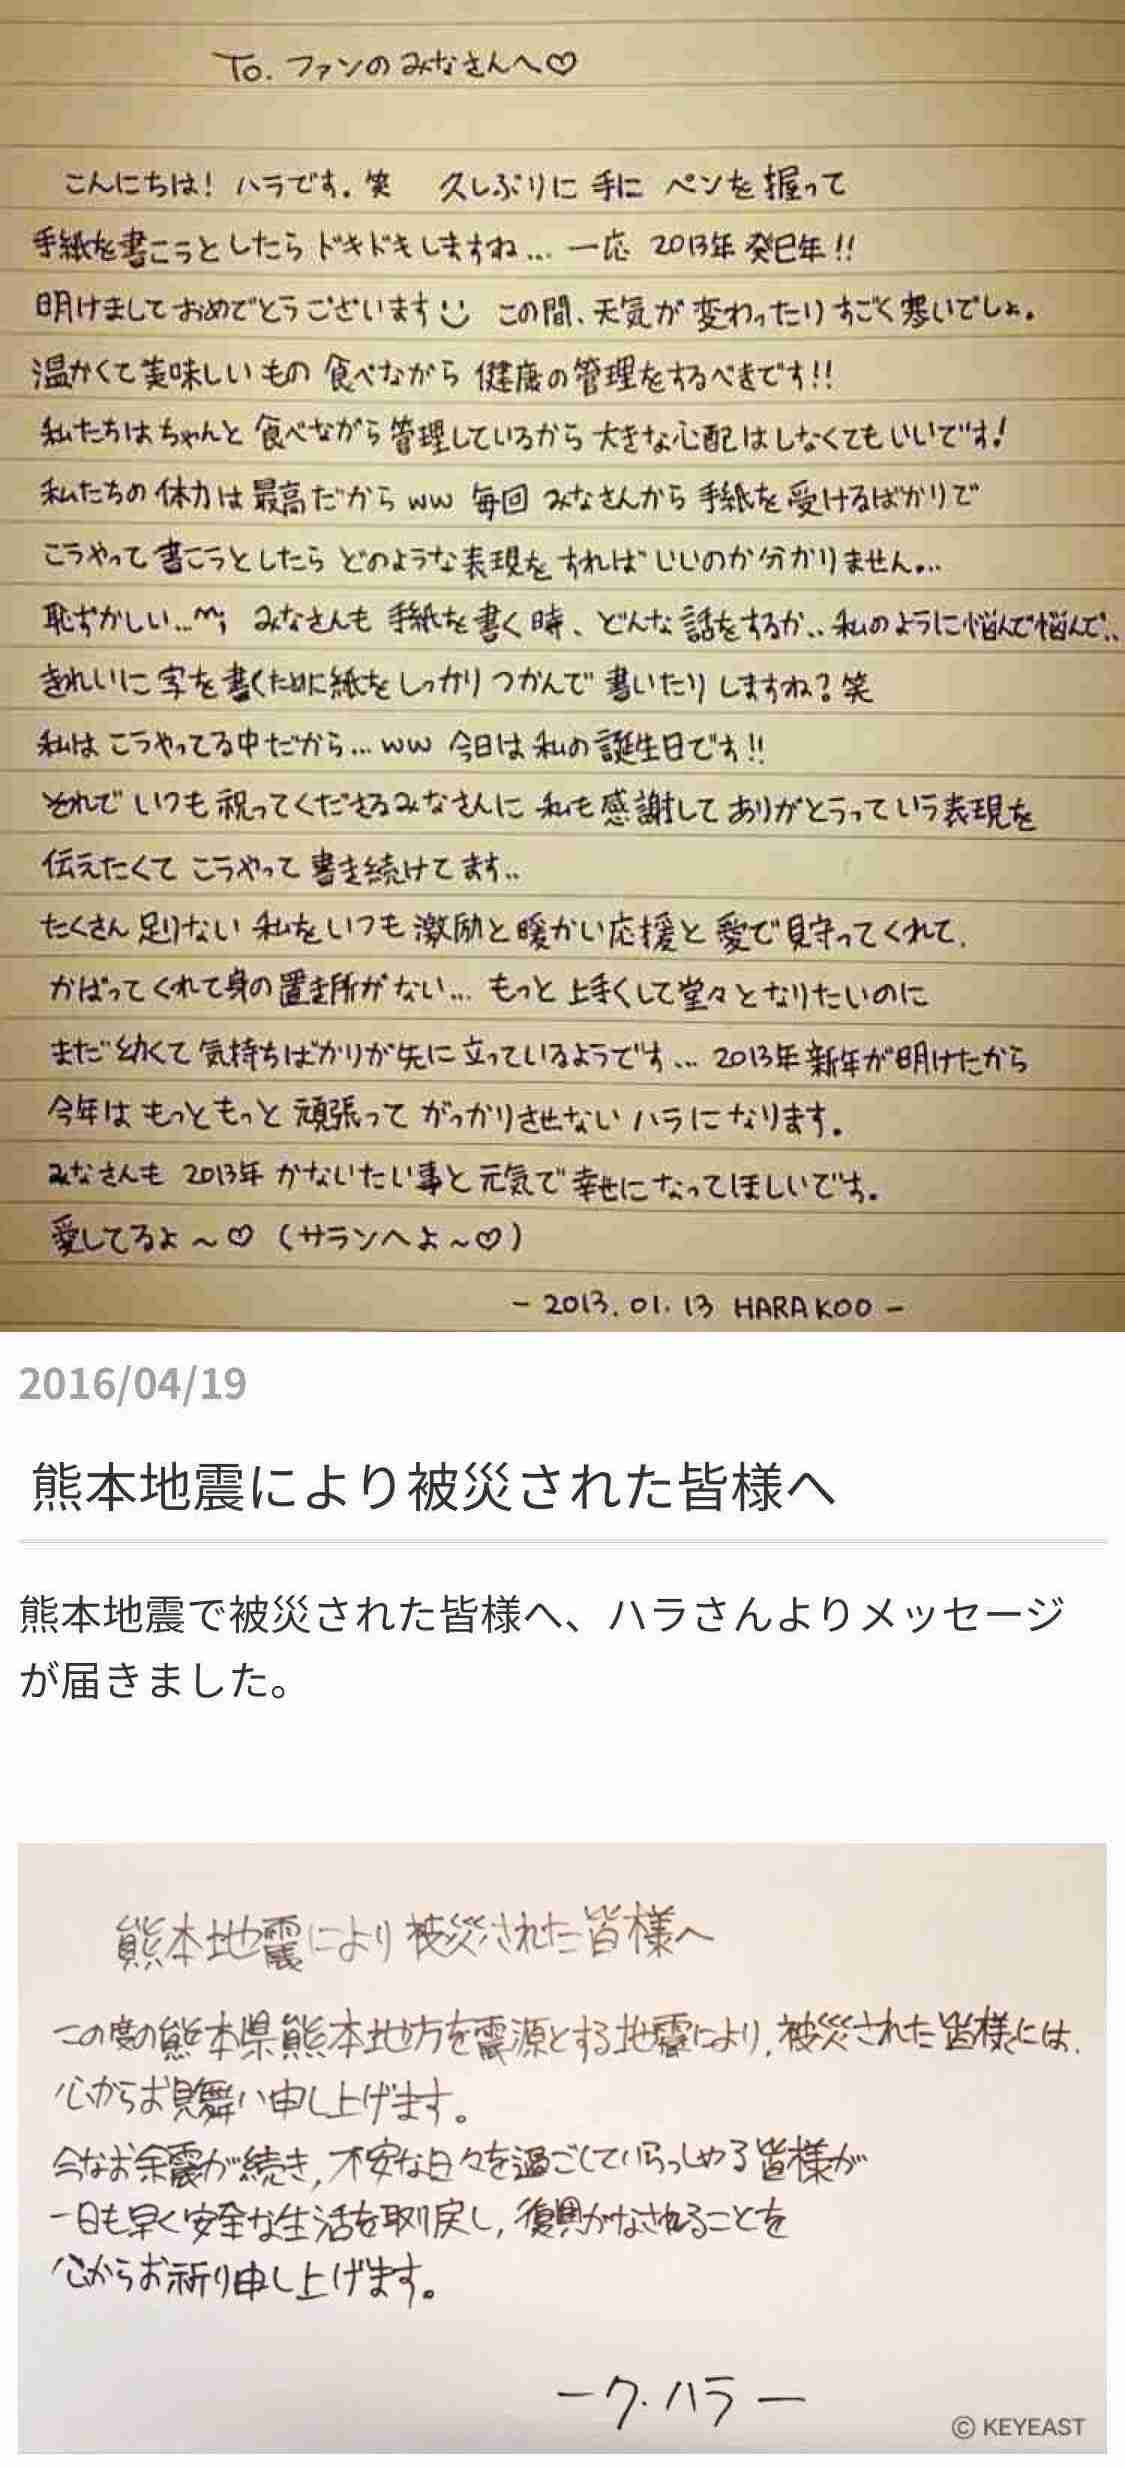 To. ファンのみなさんへ♡
こんにちは! ハラです. 笑 久しぶりに 手に ペンを 握って
手紙を書こうとしたら ドキドキしますね... 一応 2013年 癸巳年!!
明けましておめでとうございます この間、天気が 変わったり すごく 寒いでしょ.
温かくて美味しいもの 食べながら 健康の管理をするべきです!!
私たちはちゃんと 食べながら管理しているから 大きな心配はしなくてもいいです!
私たちの 体力は 最高だから ww 毎回 みなさんから 手紙を 受けるばかりで
こうやって 書こうとしたら どのような表現を すれば いいのか分かりません...
恥ずかしい...^^; みなさんも 手紙を書く時、どんな話をするか.. 私のように悩んで悩んで..
きれいに 字を書くために紙をしっかりつかんで 書いたり しますね? 笑
私は こうやってる中だから... ww 今日は 私の 誕生日です!!
それで いつも 祝ってくださるみなさんに 私も 感謝して ありがとうっていう表現を
伝えたくて こうやって 書き続けてます..
たくさん 足りない 私を いつも 激励と 暖かい応援と 愛で 見守ってくれて.
かばってくれて身の置き所がない... もっと 上手くして堂々となりたいのに
まだ 幼くて 気持ちばかりが先に 立っているようです... 2013年新年が明けたから
今年は もっともっと 頑張って がっかりさせない ハラになります.
みなさんも 2013年 かないたい事と 元気で 幸せになってほしいです.
愛してるよ~♡ (サランヘよ~♡)
- 2013. 01. 13 HARA KOO -
2016/04/19
熊本地震により被災された皆様へ
熊本地震で被災された皆様へ、ハラさんよりメッセージ
が届きました。
熊本地震により被災された皆様へ
この度の熊本県熊本地方を震源とする地震により,被災された皆様には,
心からお見舞い申し上げます。
今なお余震が続き,不安な日々を過ごしていらっしゃる皆様が
一日も早く安全な生活を取り戻し,復興がなされることを
心からお祈り申し上げます。
ーク・ハラー
© KEYEAST